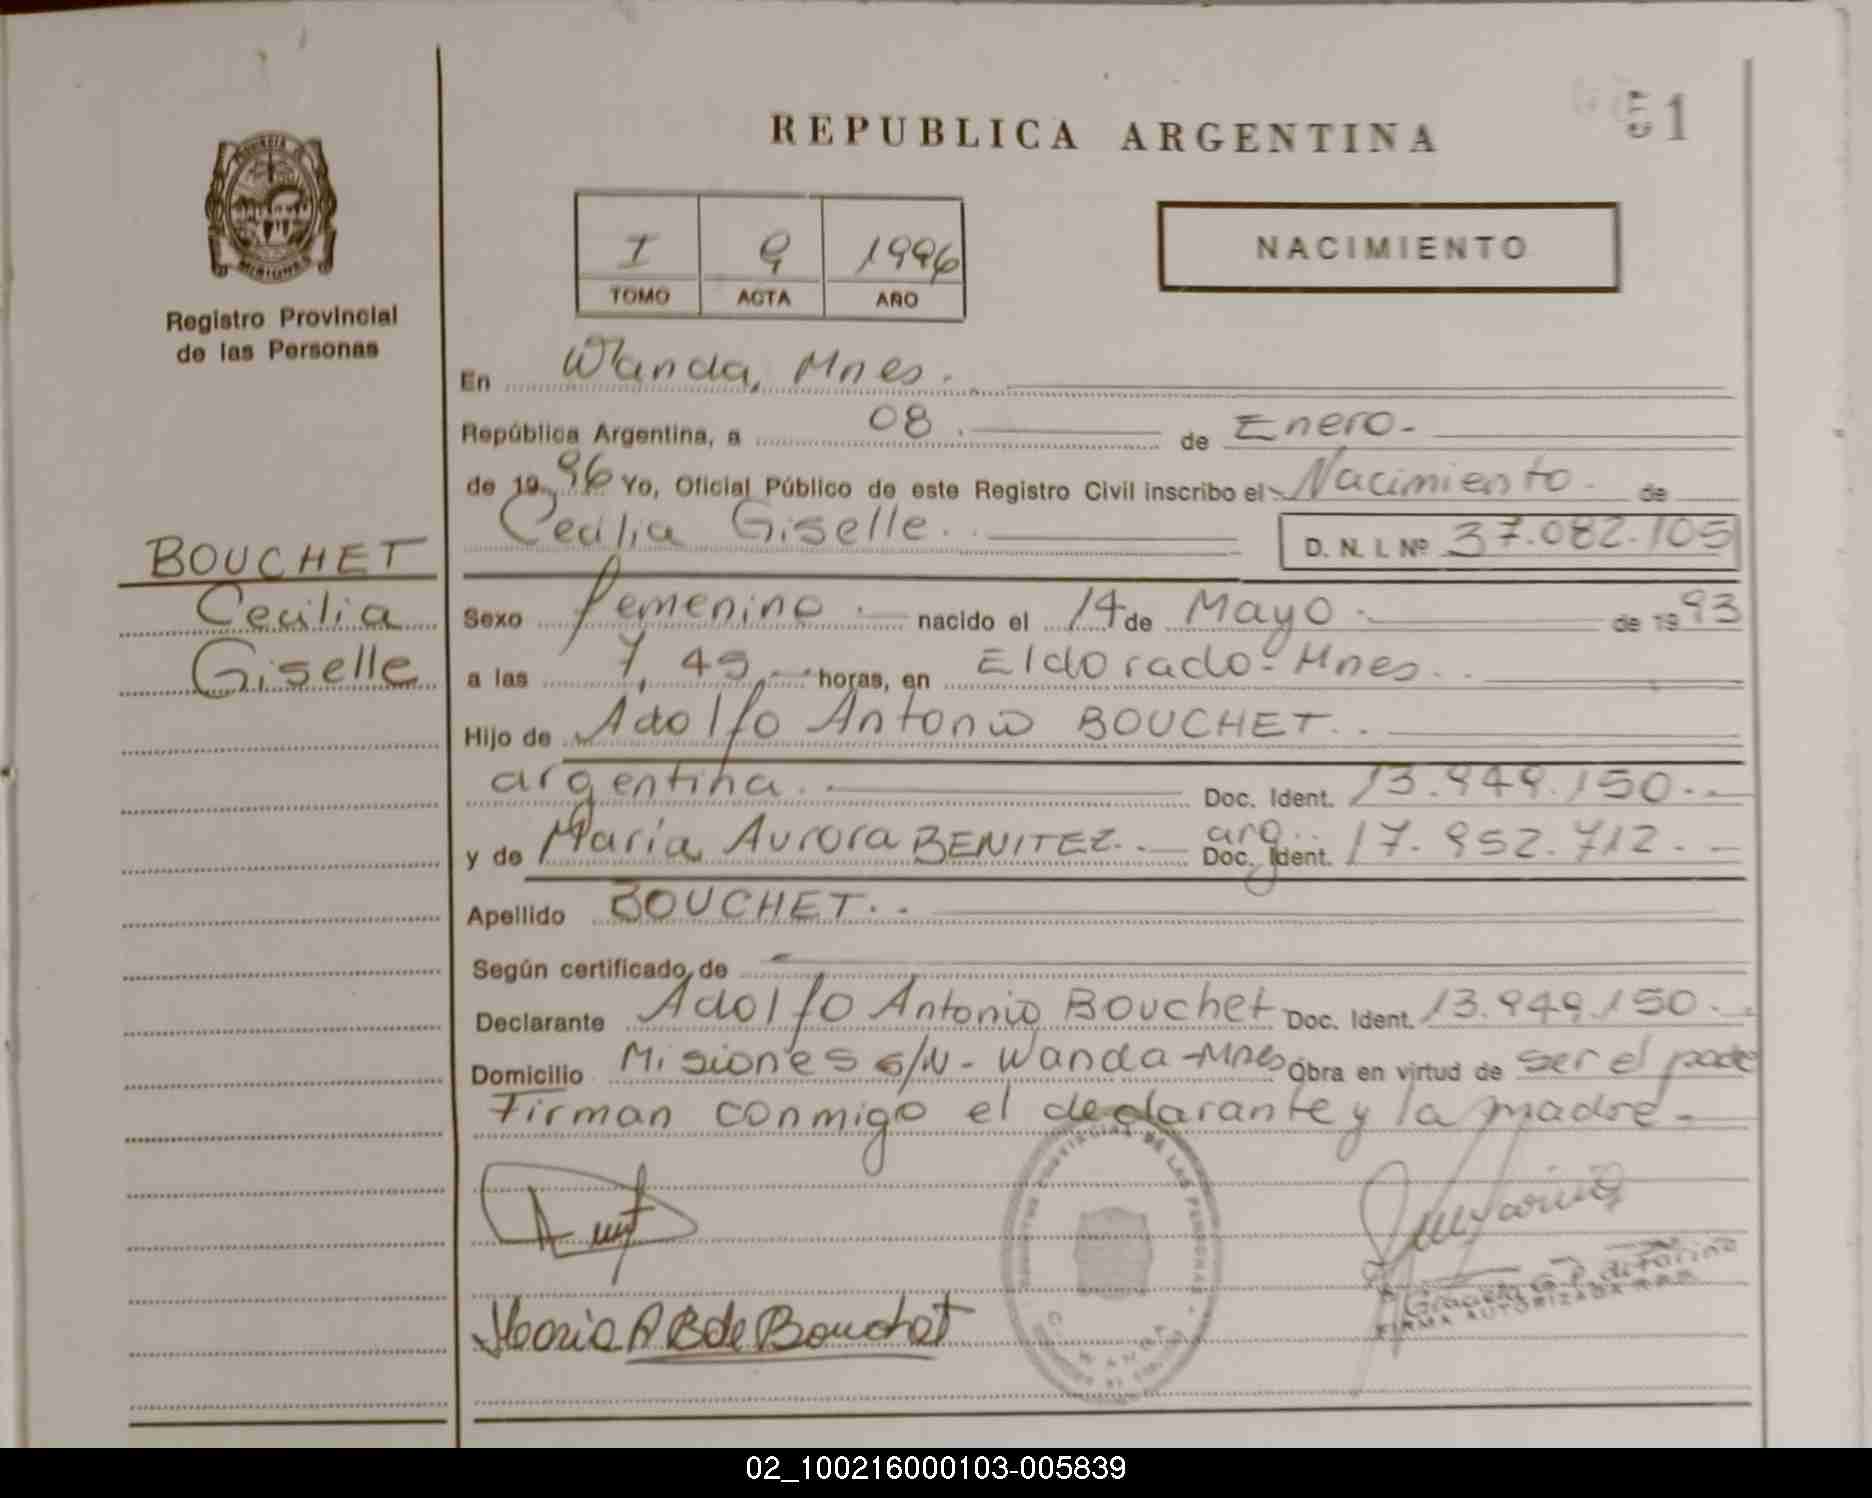 REPUBLICA ARGENTINA
51
MISIONES
Registro Provincial
de las Personas
I 9 1996
TOMO ACTA AÑO
NACIMIENTO
En Wanda, Mnes.
República Argentina, a 08 de Enero.-
de 1996 Yo, Oficial Público de este Registro Civil inscribo el Nacimiento. de
Cecilia Giselle. D. N. I. Nº 37.082.105
BOUCHET
Cecilia
Giselle
Sexo femenino. nacido el 14 de Mayo. de 1993
a las 7,45 horas, en Eldorado-Mnes.
Hijo de Adolfo Antonio BOUCHET.
argentina. Doc. Ident. 13.949.150.
y de María Aurora BENITEZ. arg. Doc. Ident. 17.952.712.
Apellido BOUCHET.
Según certificado de
Declarante Adolfo Antonio Bouchet Doc. Ident. 13.949.150.
Domicilio Misiones s/N- Wanda-Mnes Obra en virtud de ser el padre
Firman conmigo el declarante y la madre.-
Maria A B de Bouchet
PROVINCIAL DE LAS PERSONAS
FIRMA AUTORIZADA
02_100216000103-005839